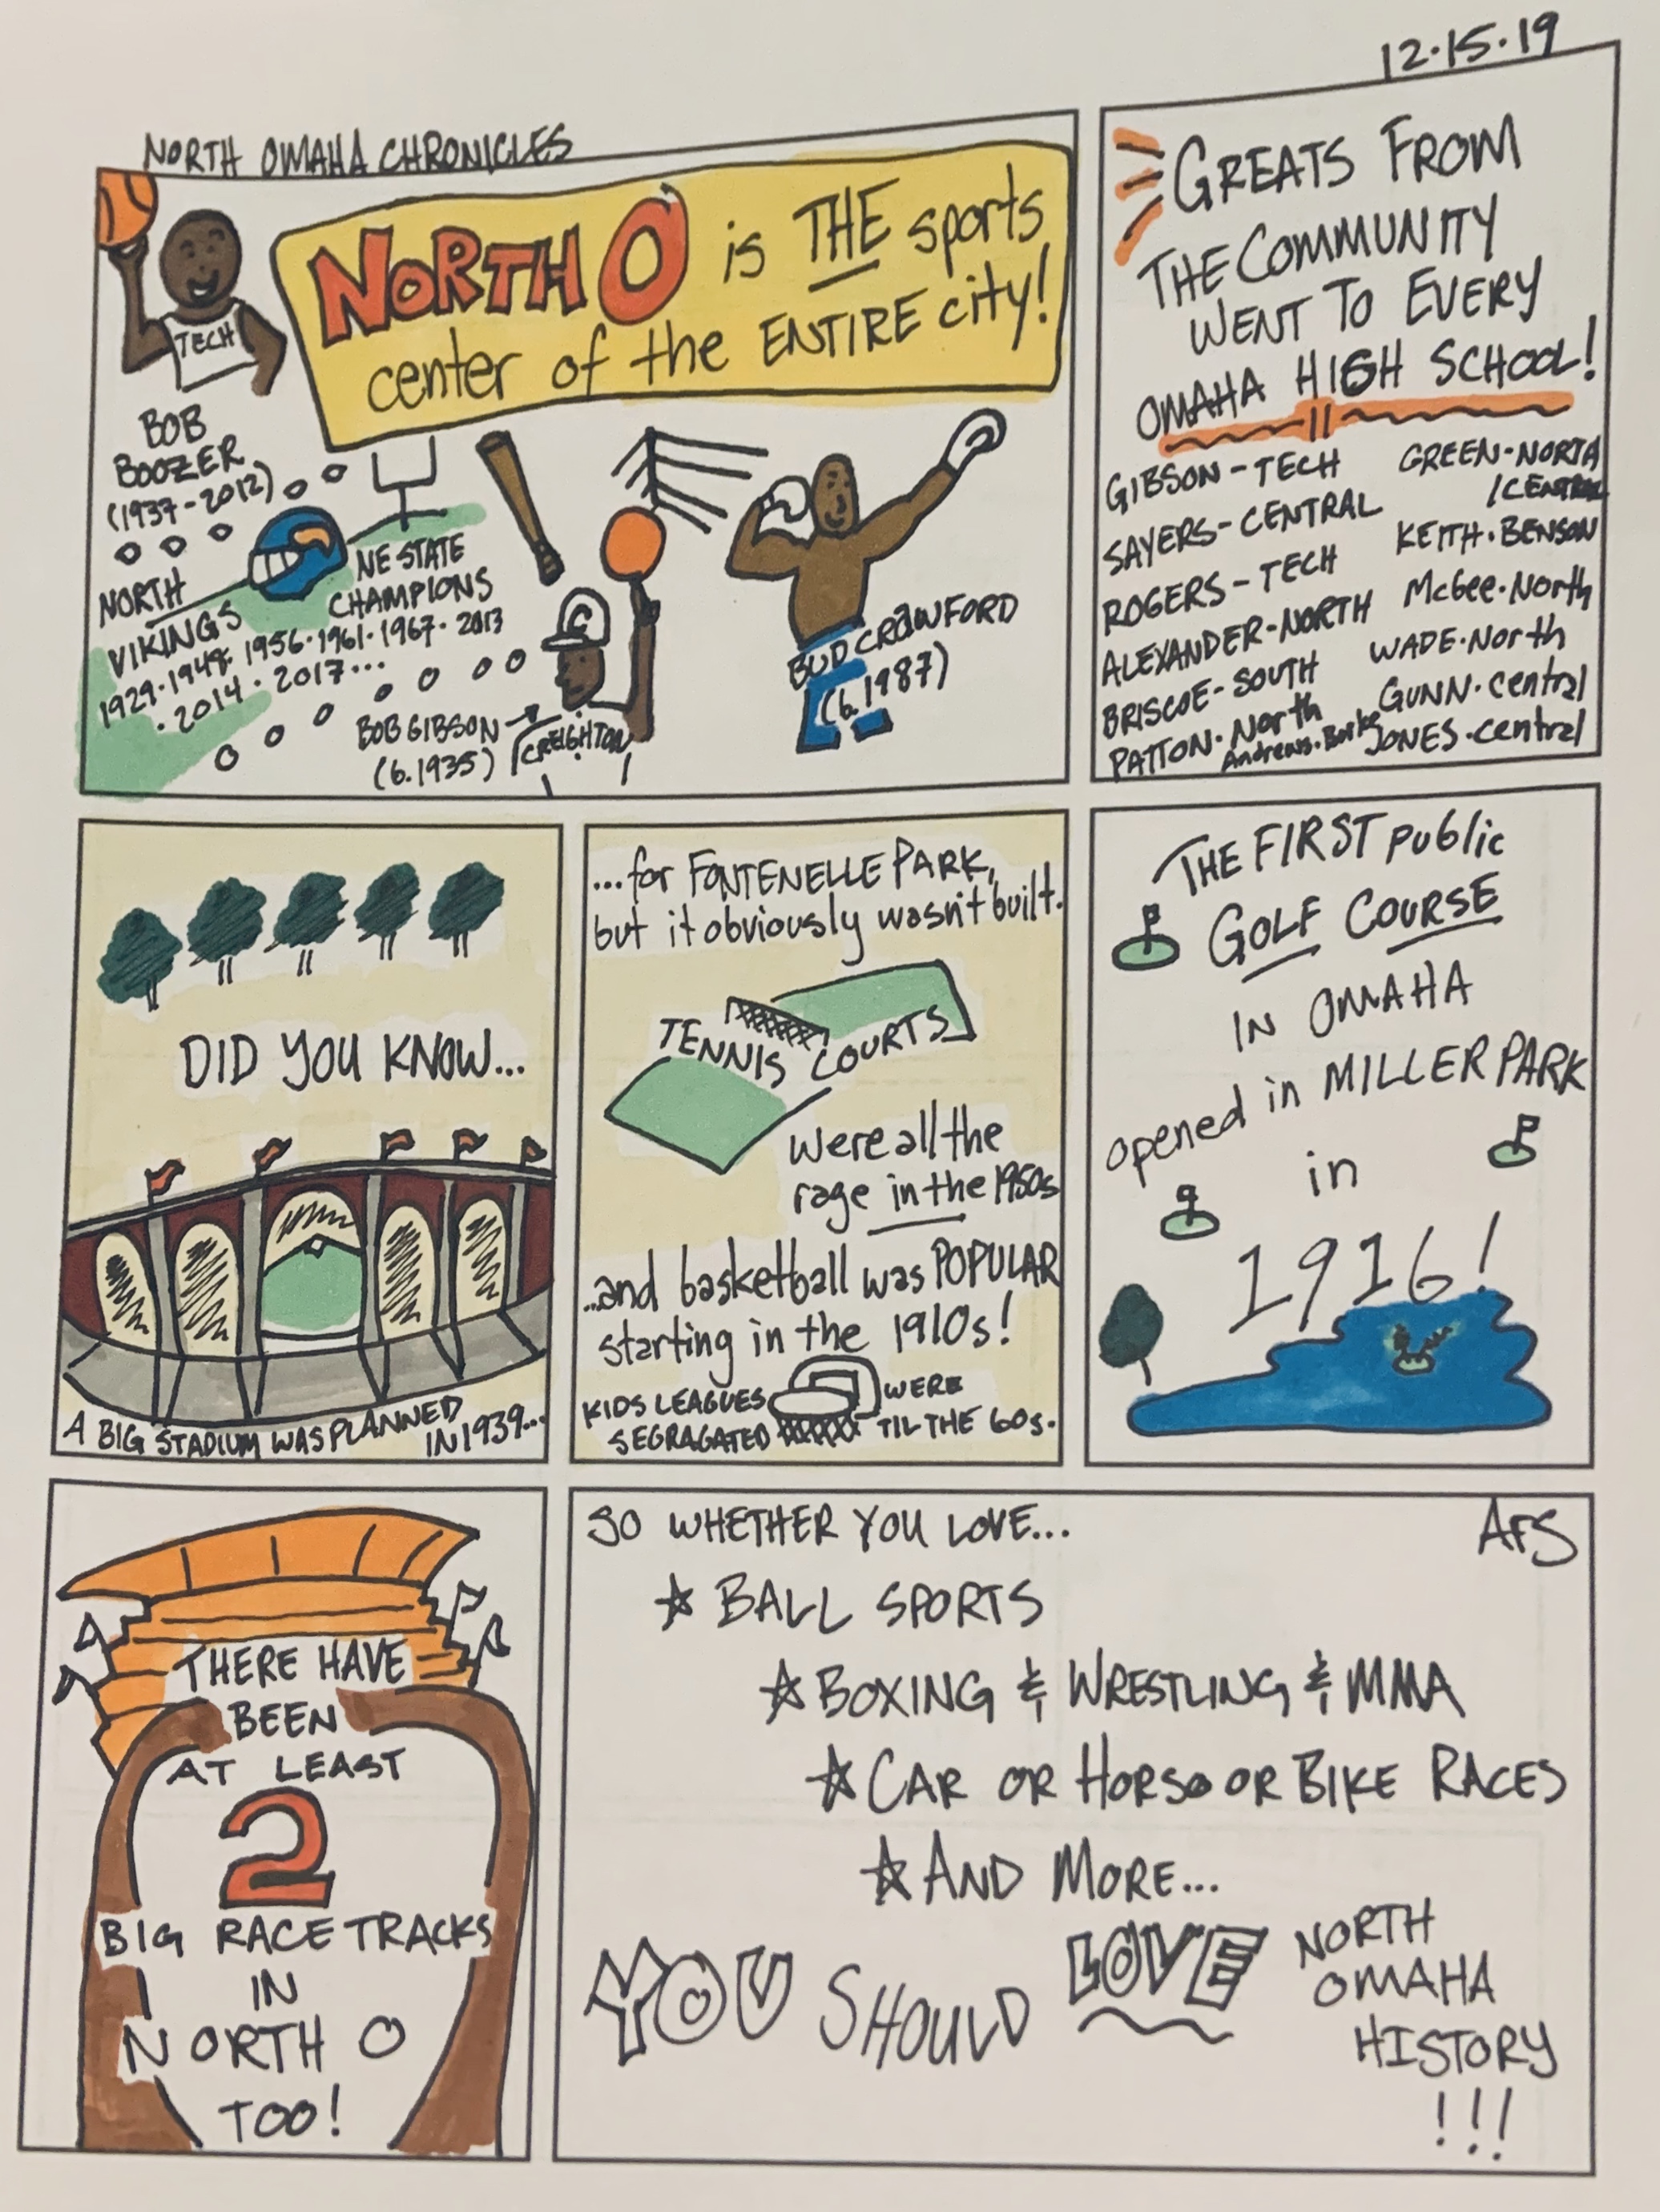 12.15.19
NORTH OMAHA CHRONICLES
NORTH O is THE sports
center of the ENTIRE city!
TECH
BOB
BOOZER
(1937-2012)
NORTH
VIKINGS
NE STATE
CHAMPIONS
1929.1948. 1956.1961.1967.2013
.2014.2017...
C
BOB GIBSON
(b.1935)
CREIGHTON
BUD CRAWFORD
(b.1987)
GREATS FROM
THE COMMUNITY
WENT TO EVERY
OMAHA HIGH SCHOOL!
GIBSON-TECH
SAYERS-CENTRAL
ROGERS-TECH
ALEXANDER-NORTH
BRISCOE-SOUTH
PATTON.North
Andrews.Burke
GREEN-NORTH
/CENTRAL
KEITH.BENSON
McGee.North
WADE.North
GUNN.central
JONES.central
DID YOU KNOW...
A BIG STADIUM WAS PLANNED
IN 1939...
...for FONTENELLE PARK,
but it obviously wasn't built.
TENNIS COURTS
were all the
rage in the 1950s
...and basketball was POPULAR
starting in the 1910s!
KIDS LEAGUES WERE
SEGRAGATED TIL THE 60s.
THE FIRST public
GOLF COURSE
IN OMAHA
opened in MILLER PARK
in
1916!
THERE HAVE
BEEN
AT LEAST
2
BIG RACE TRACKS
IN
NORTH O
TOO!
SO WHETHER YOU LOVE...
AFS
☆ BALL SPORTS
☆ BOXING & WRESTLING & MMA
☆ CAR OR HORSE OR BIKE RACES
☆ AND MORE...
YOU SHOULD LOVE NORTH
OMAHA
HISTORY
!!!